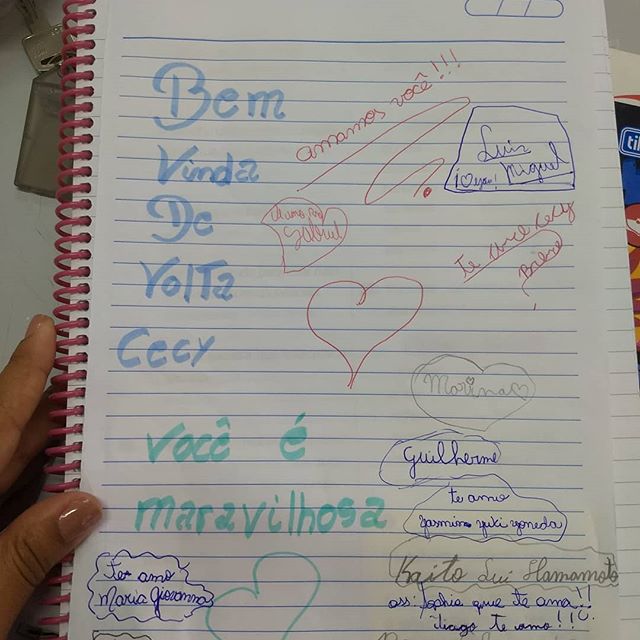 Bem
Vinda
De
Volta
Cecy
você é
maravilhosa
amamos você!!!
Luis
Miguel
Gabriel
te amo Cecy
Marina
Guilherme
te amo
Jasmim yuki yoneda
Kaito Lui Hamamoto
ass: Sophia que te ama!!
Tiago te amo!!
Te amo
Maria Giovanna